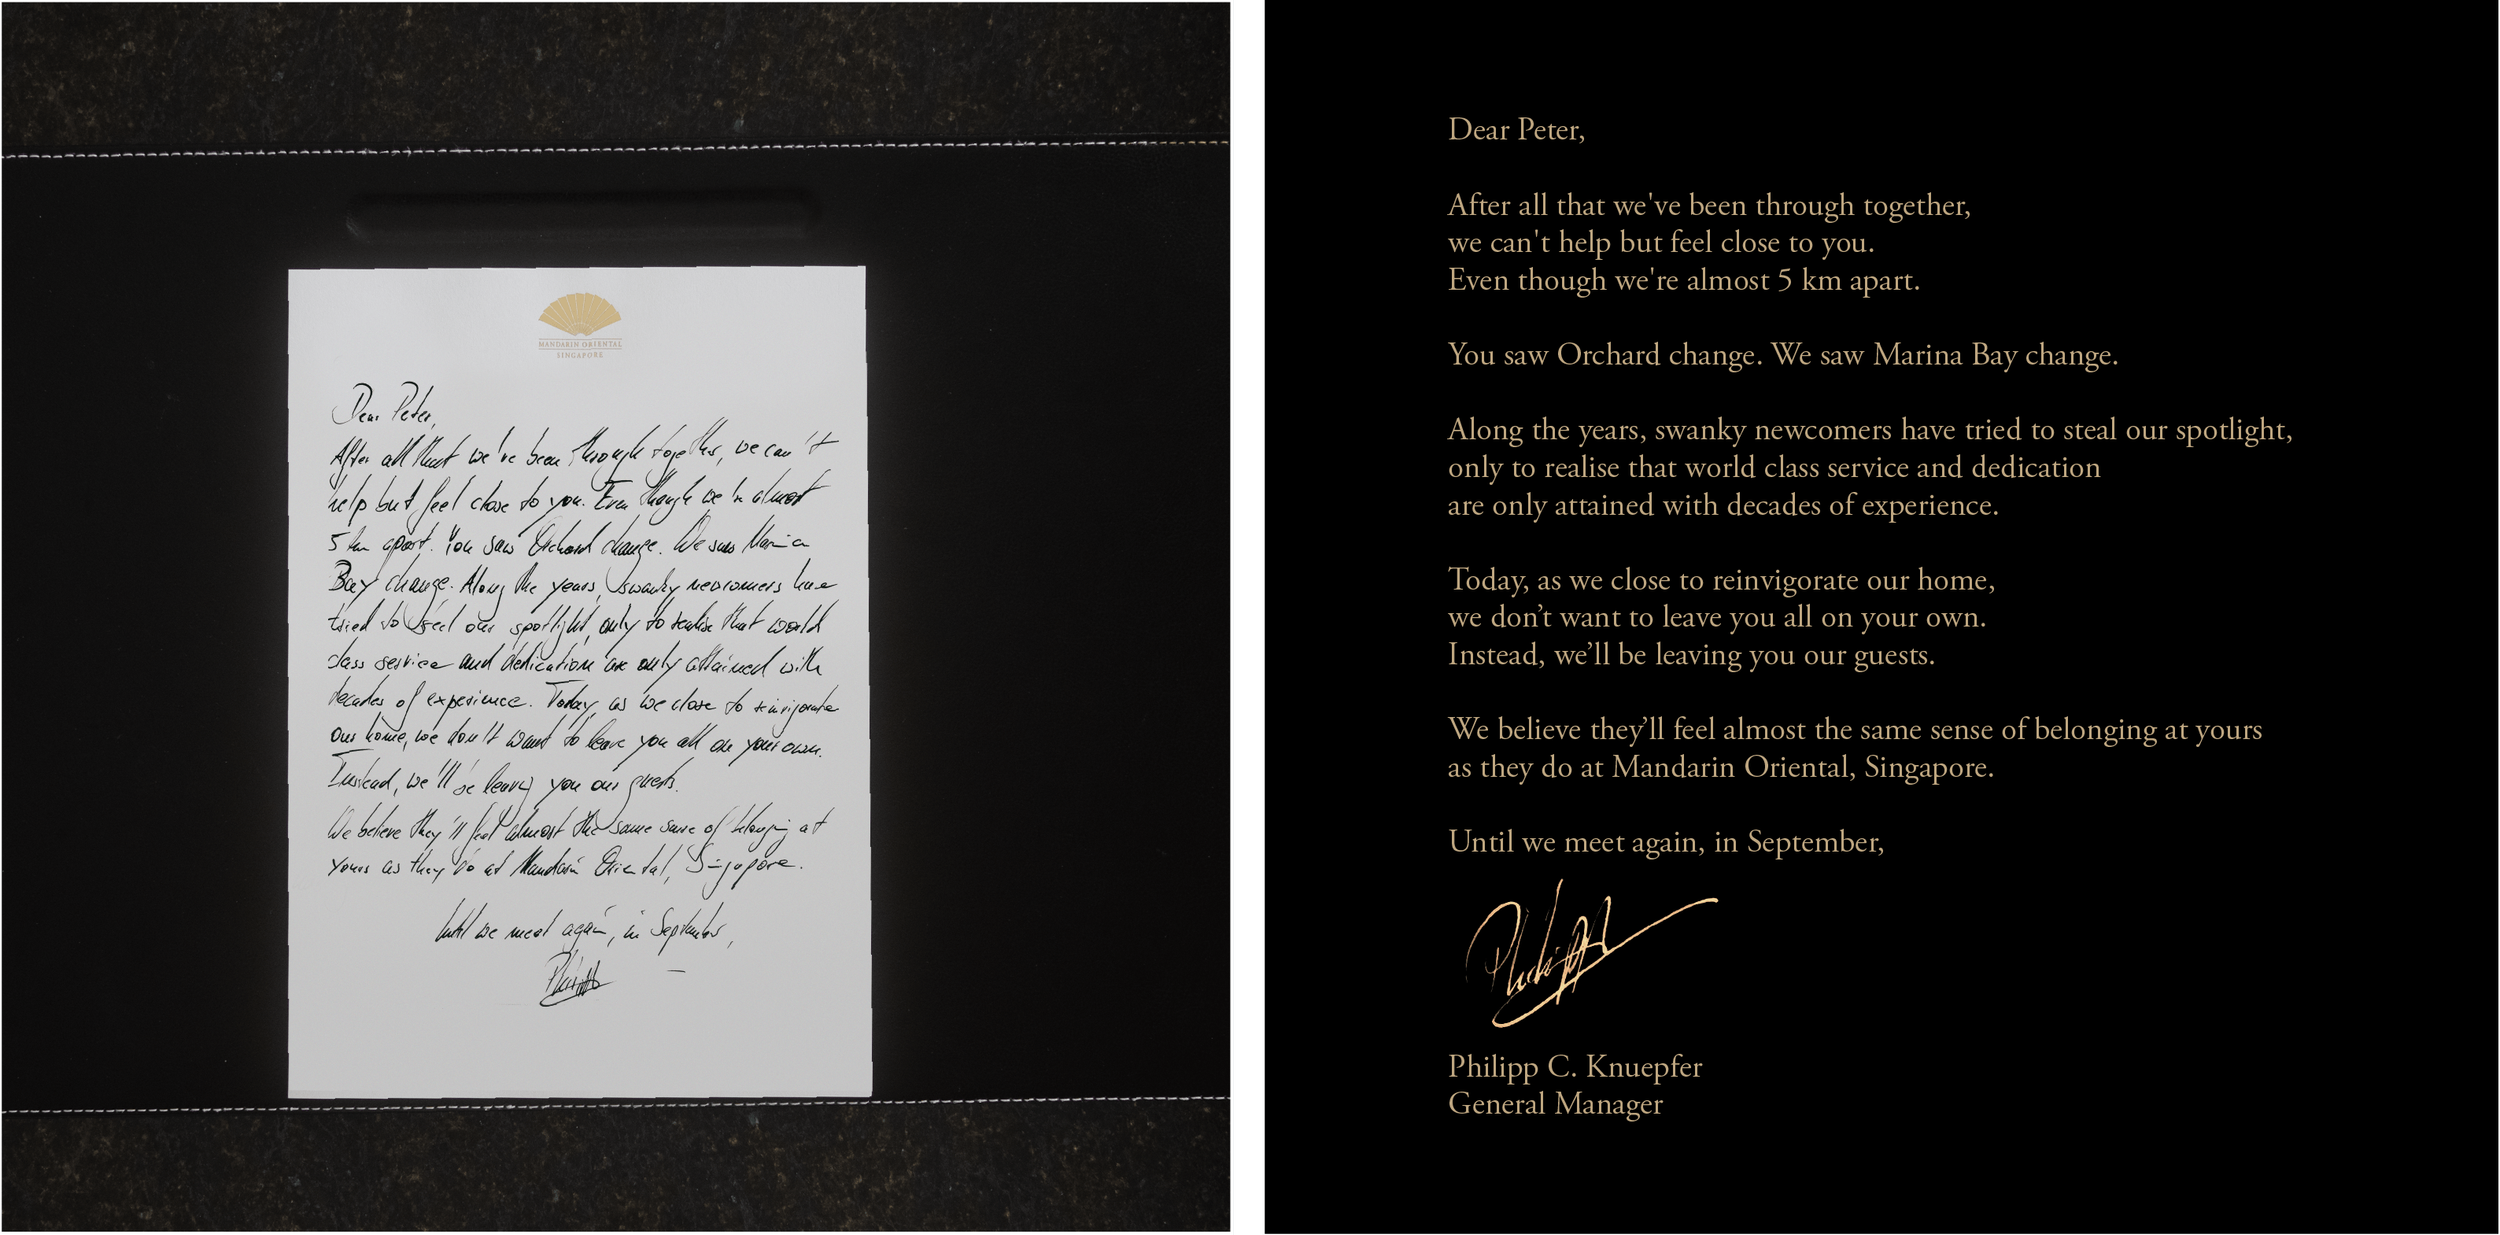 MANDARIN ORIENTAL
SINGAPORE
Dear Peter,
After all that we've been through together, we can't
help but feel close to you. Even though we're almost
5 km apart. You saw Orchard change. We saw Marina
Bay change. Along the years, swanky newcomers have
tried to steal our spotlight, only to realise that world
class service and dedication are only attained with
decades of experience. Today, as we close to reinvigorate
our home, we don't want to leave you all on your own.
Instead, we'll be leaving you our guests.
We believe they'll feel almost the same sense of belonging at
yours as they do at Mandarin Oriental, Singapore.
Until we meet again, in September,
Philipp
Dear Peter,
After all that we've been through together,
we can't help but feel close to you.
Even though we're almost 5 km apart.
You saw Orchard change. We saw Marina Bay change.
Along the years, swanky newcomers have tried to steal our spotlight,
only to realise that world class service and dedication
are only attained with decades of experience.
Today, as we close to reinvigorate our home,
we don’t want to leave you all on your own.
Instead, we’ll be leaving you our guests.
We believe they’ll feel almost the same sense of belonging at yours
as they do at Mandarin Oriental, Singapore.
Until we meet again, in September,
Philipp
Philipp C. Knuepfer
General Manager